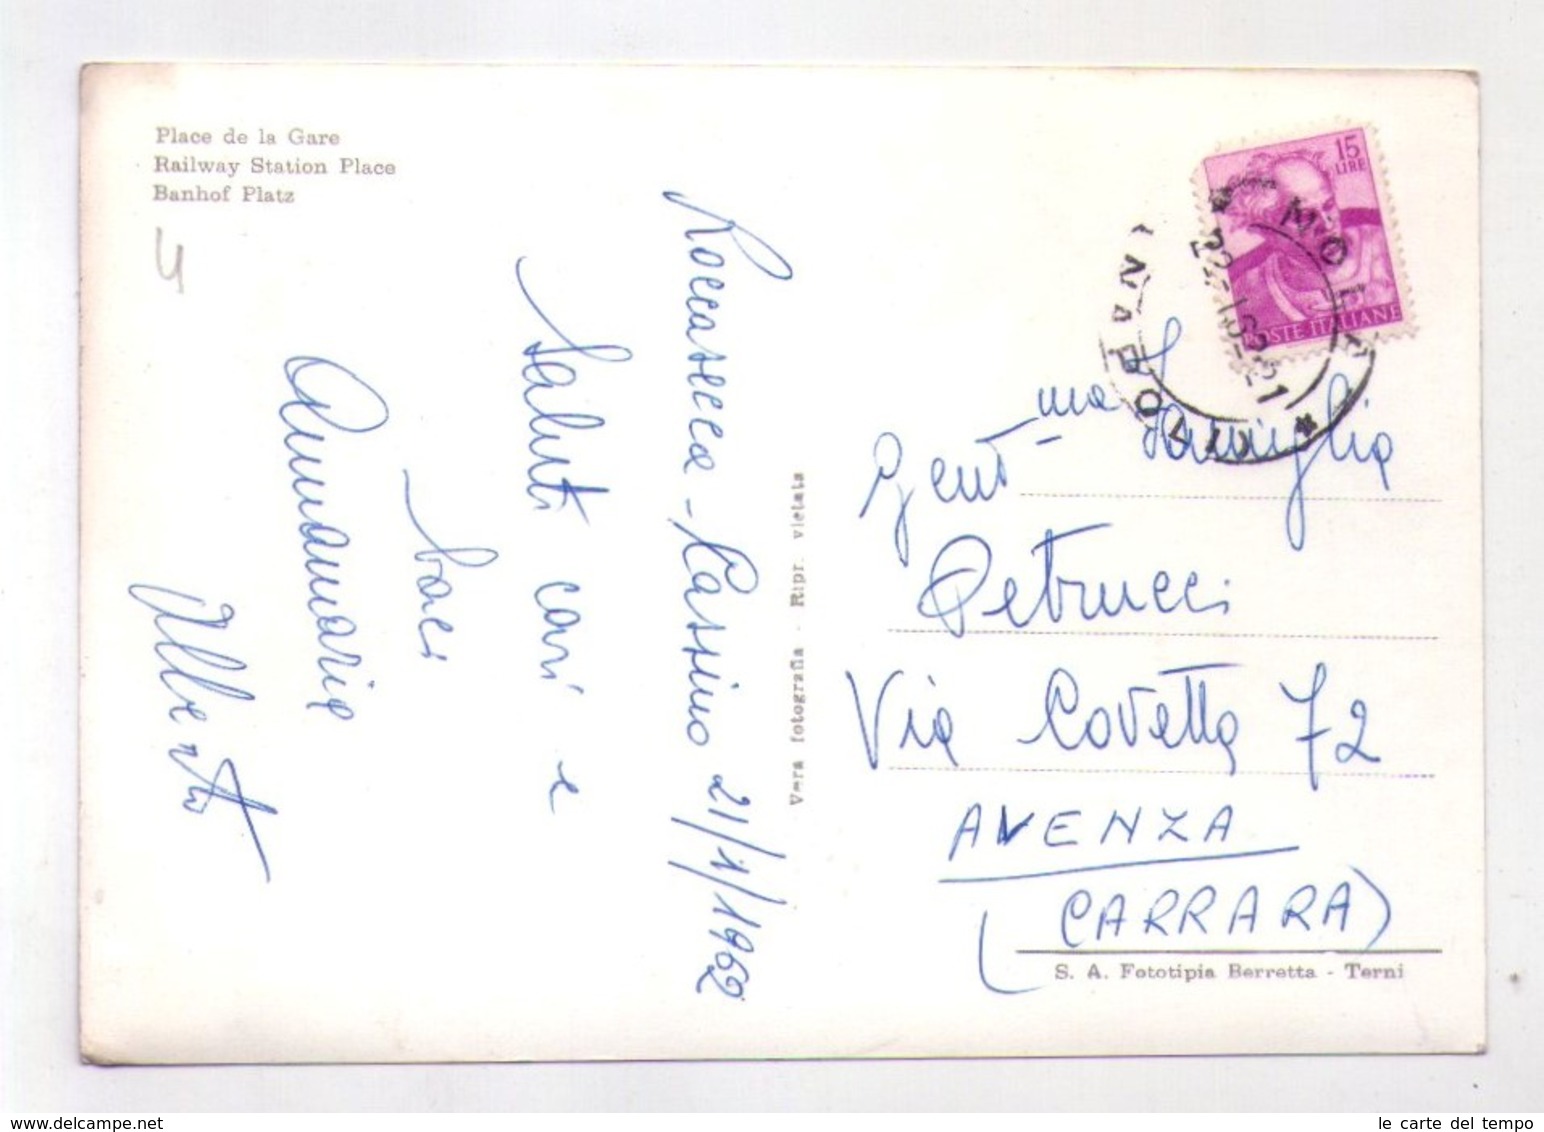 Place de la Gare
Railway Station Place
Banhof Platz
4
Roccasecca - Cassino 21/1/1962
Saluti cari e
baci
Annamaria
Alberto
Vera fotografia - Ripr. vietata
15
LIRE
POSTE ITALIANE
NAPOLI
22-1-62-21
Gent.ma Famiglia
Petrucci
Via Covetta 72
AVENZA
(CARRARA)
S. A. Fototipia Berretta - Terni
le carte del tempo